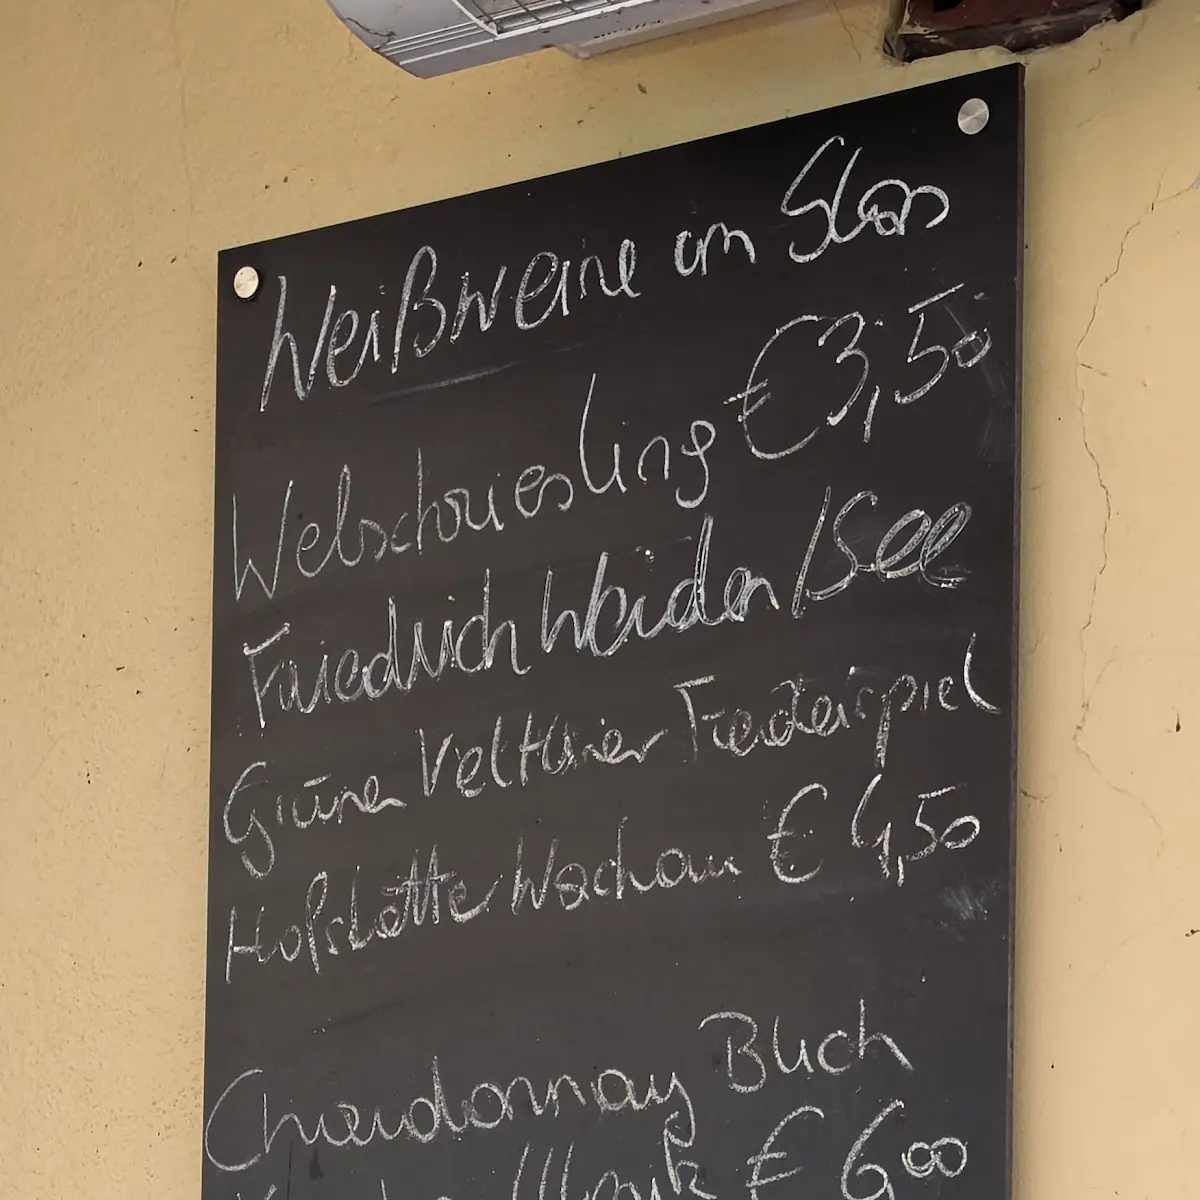 Weißweine im Glas
Welschriesling € 3,50
Friedrich Weiden/See
Grüner Veltliner Federspiel
Hofstötte Wachau € 4,50
Chardonnay Buch
€ 6,00